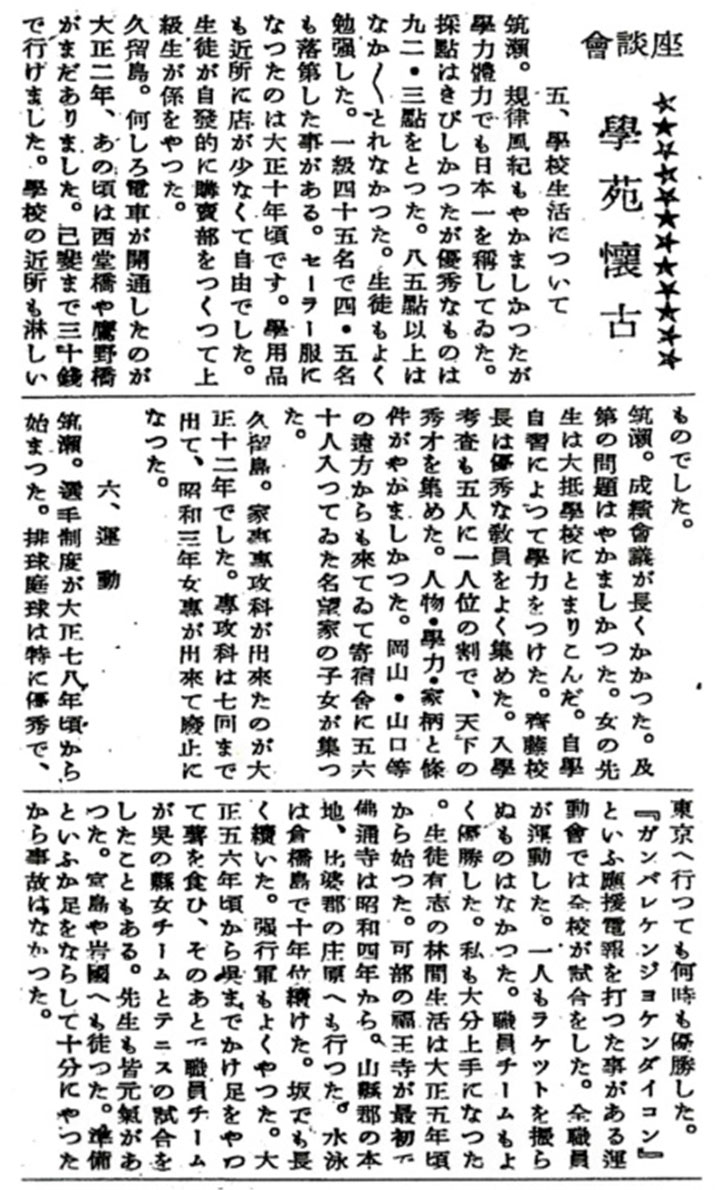 座談會
★★★★★★★★★★★
學苑懷古
五、學校生活について
筑瀬。規律風紀もやかましかつたが
學力體力でも日本一を稱してゐた。
採點はきびしかつたが優秀なものは
九二・三點をとつた。八五點以上は
なか〱とれなかつた。生徒もよく
勉强した。一級四十五名で四・五名
も落第した事がある。セーラー服に
なつたのは大正十年頃です。學用品
も近所に店が少なくて自由でした。
生徒が自發的に購賣部をつくつて上
級生が係をやつた。
久留島。何しろ電車が開通したのが
大正二年、あの頃は西堂橋や鷹野橋
がまだありました。己斐まで三十錢
で行けました。學校の近所も淋しい
ものでした。
筑瀬。成績會議が長くかかつた。及
第の問題はやかましかつた。女の先
生は大抵學校にとまりこんだ。自學
自習によつて學力をつけた。齊藤校
長は優秀な敎員をよく集めた。入學
考査も五人に一人位の割で、天下の
秀才を集めた。人物・學力・家柄と條
件がやかましかつた。岡山・山口等
の遠方からも來てゐて寄宿舍に五六
十人入つてゐた名望家の子女が集つ
た。
久留島。家事專攻科が出來たのが大
正十二年でした。專攻科は七回まで
出て、昭和三年女專が出來て廢止に
なつた。
六、運動
筑瀬。選手制度が大正七八年頃から
始まつた。排球庭球は特に優秀で、
東京へ行つても何時も優勝した。
『ガンバレケンジヨケンダイコン』
といふ應援電報を打つた事がある運
動會では全校が試合をした。全職員
が運動した。一人もラケツトを握ら
ぬものはなかつた。職員チームもよ
く優勝した。私も大分上手になつた
。生徒有志の林間生活は大正五年頃
から始つた。可部の福王寺が最初で
佛通寺は昭和四年から。山縣郡の本
地、比婆郡の庄原へも行つた。水泳
は倉橋島で十年位續けた。坂でも長
く續いた。强行軍もよくやつた。大
正五六年頃から吳までかけ足をやつ
て壽を食ひ、そのあとで職員チーム
が吳の縣女チームとテニスの試合を
したこともある。先生も皆元氣があ
つた。宮島や岩國へも徒つた。準備
といふか足をならして十分にやつた
から事故はなかつた。